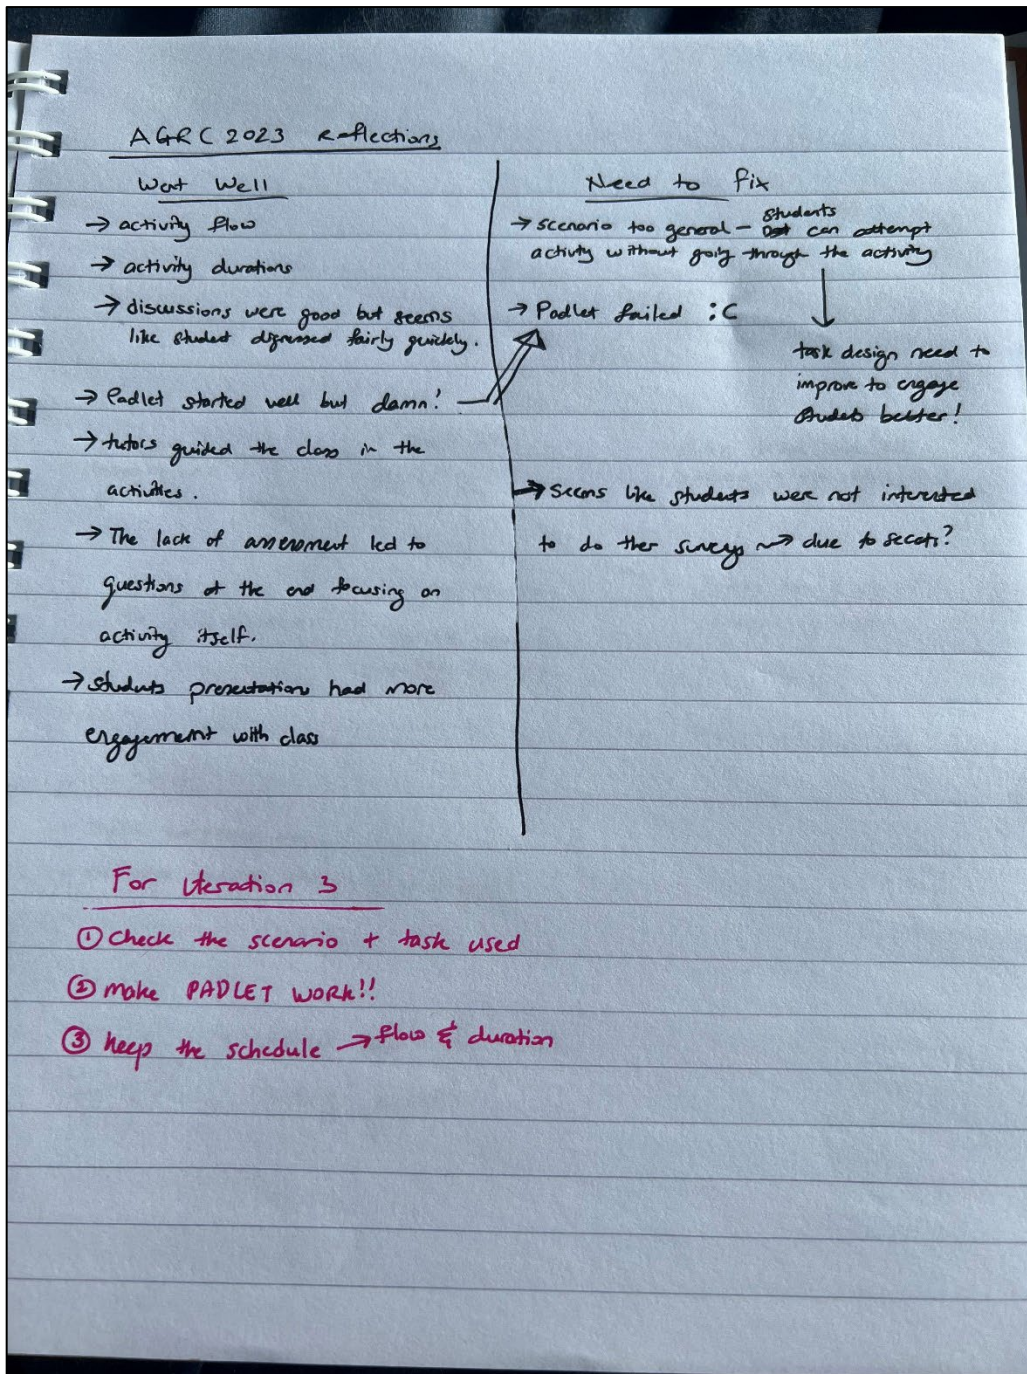 AGRC 2023 Reflections
Went Well
→ activity flow
→ activity durations
→ discussions were good but seems
like student digressed fairly quickly.
→ Padlet started well but damn!
→ tutors guided the class in the
activities.
→ The lack of assessment led to
questions at the end focusing on
activity itself.
→ students presentation had more
engagement with class
Need to fix
→ scenario too general - students can attempt
activity without going through the activity
↓
task design need to
improve to engage
students better!
→ Padlet failed :C
→ Seems like students were not interested
to do ther surveys → due to secats?
For Iteration 3
① Check the scenario + task used
② make PADLET WORK!!
③ keep the schedule → flow & duration